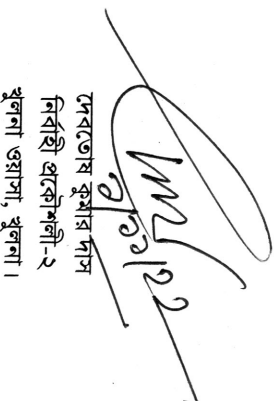 দেবতোষ কুমার দাস
নির্বাহী প্রকৌশলী-২
খুলনা ওয়াসা, খুলনা।